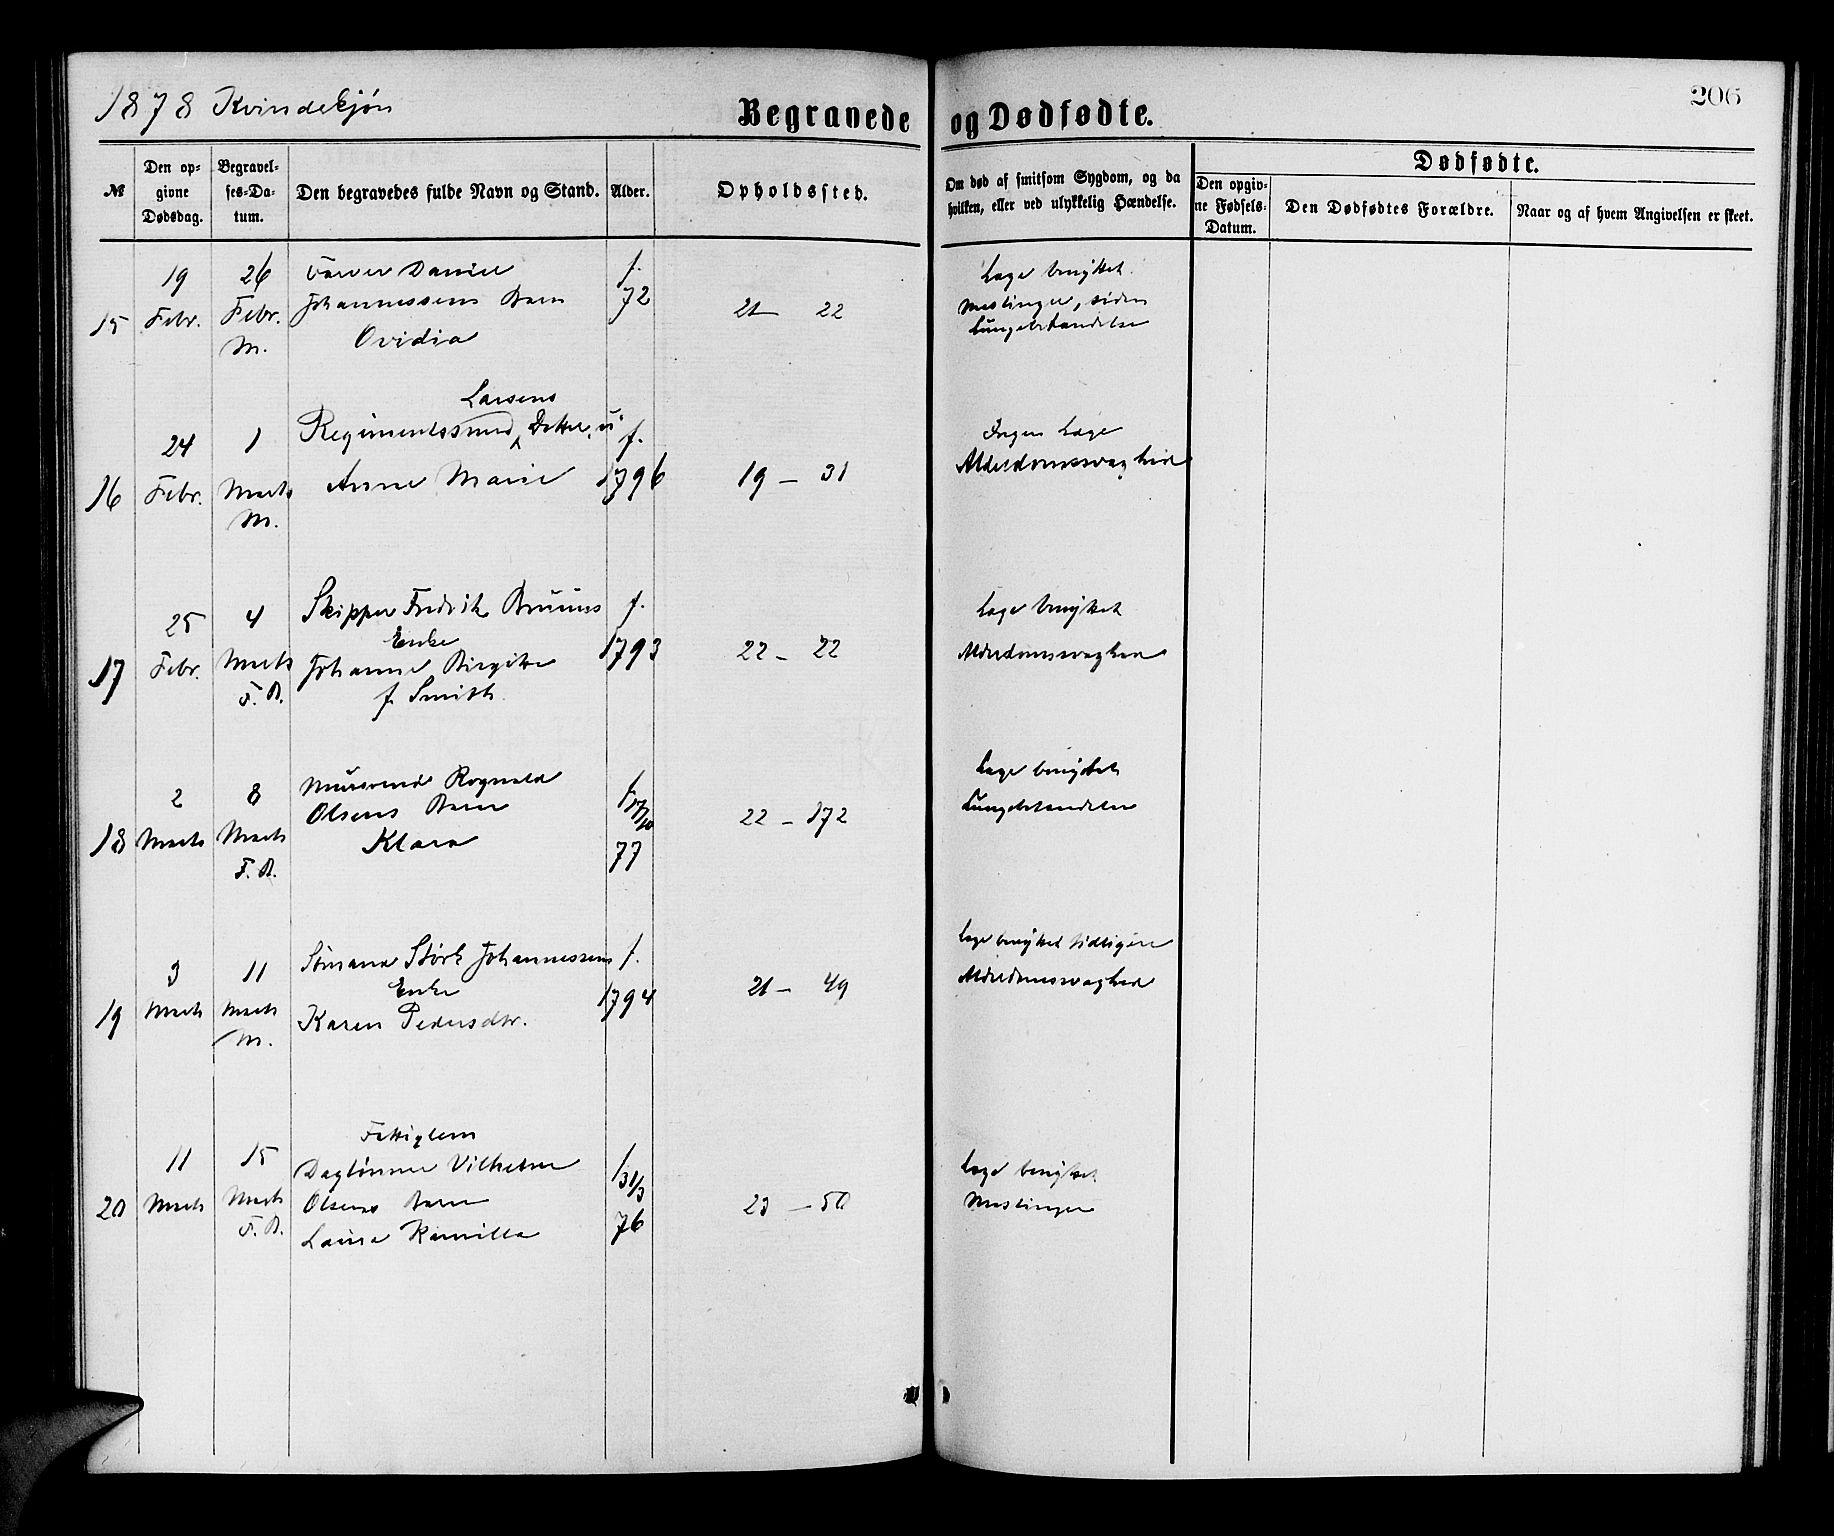 1878 Kvindekjøn
Begravede og Dødfødte.
206
№
Den op-
givne
Dødsdag.
Begravel-
ses-Da-
tum.
Den begravedes fulde Navn og Stand.
Alder.
Opholdssted.
Om død af smitsom Sygdom, og da
hvilken, eller ved ulykkelig Hændelse.
Dødfødte.
Den opgiv-
ne Fødsels-
Datum.
Den Dødfødtes Forældre.
Naar og af hvem Angivelsen er skeet.
15
19
Febr.
26
Febr.
M.
Farver Daniel
Johannessens Barn
Ovidia
f.
72
21 22
Læge benyttet.
Meslinger, siden
Lungebetændelse
16
24
Febr.
1
Marts
M.
Larsens
Regimentssmed Datter, u
Anne Marie
f.
1796
19 – 31
Ingen Læge
Alderdomssvaghed
17
25
Febr.
4
Marts
F. B.
Skipper Fredrik Bruuns
Enke
Johanne Birgitte
f. Smith
f.
1793
22 – 22
Læge benyttet
Alderdomssvaghed
18
2
Marts
8
Marts
F. B.
Mursvend Rognald
Olsens Barn
Klara
f 17/10
77
22 – 172
Læge benyttet
Lungebetændelse
19
3
Marts
11
Marts
M.
Sømand Størk Johannessens
Enke
Karen Pedersdtr.
f.
1794
21 – 49
Læge benyttet tidligere
Alderdomssvaghed
20
11
Marts
15
Marts
F. B.
Fattiglem
Daglønner Vilhelm
Olsens Barn
Laura Kamilla
f 31/3
76
23 – 50
Læge benyttet
Meslinger